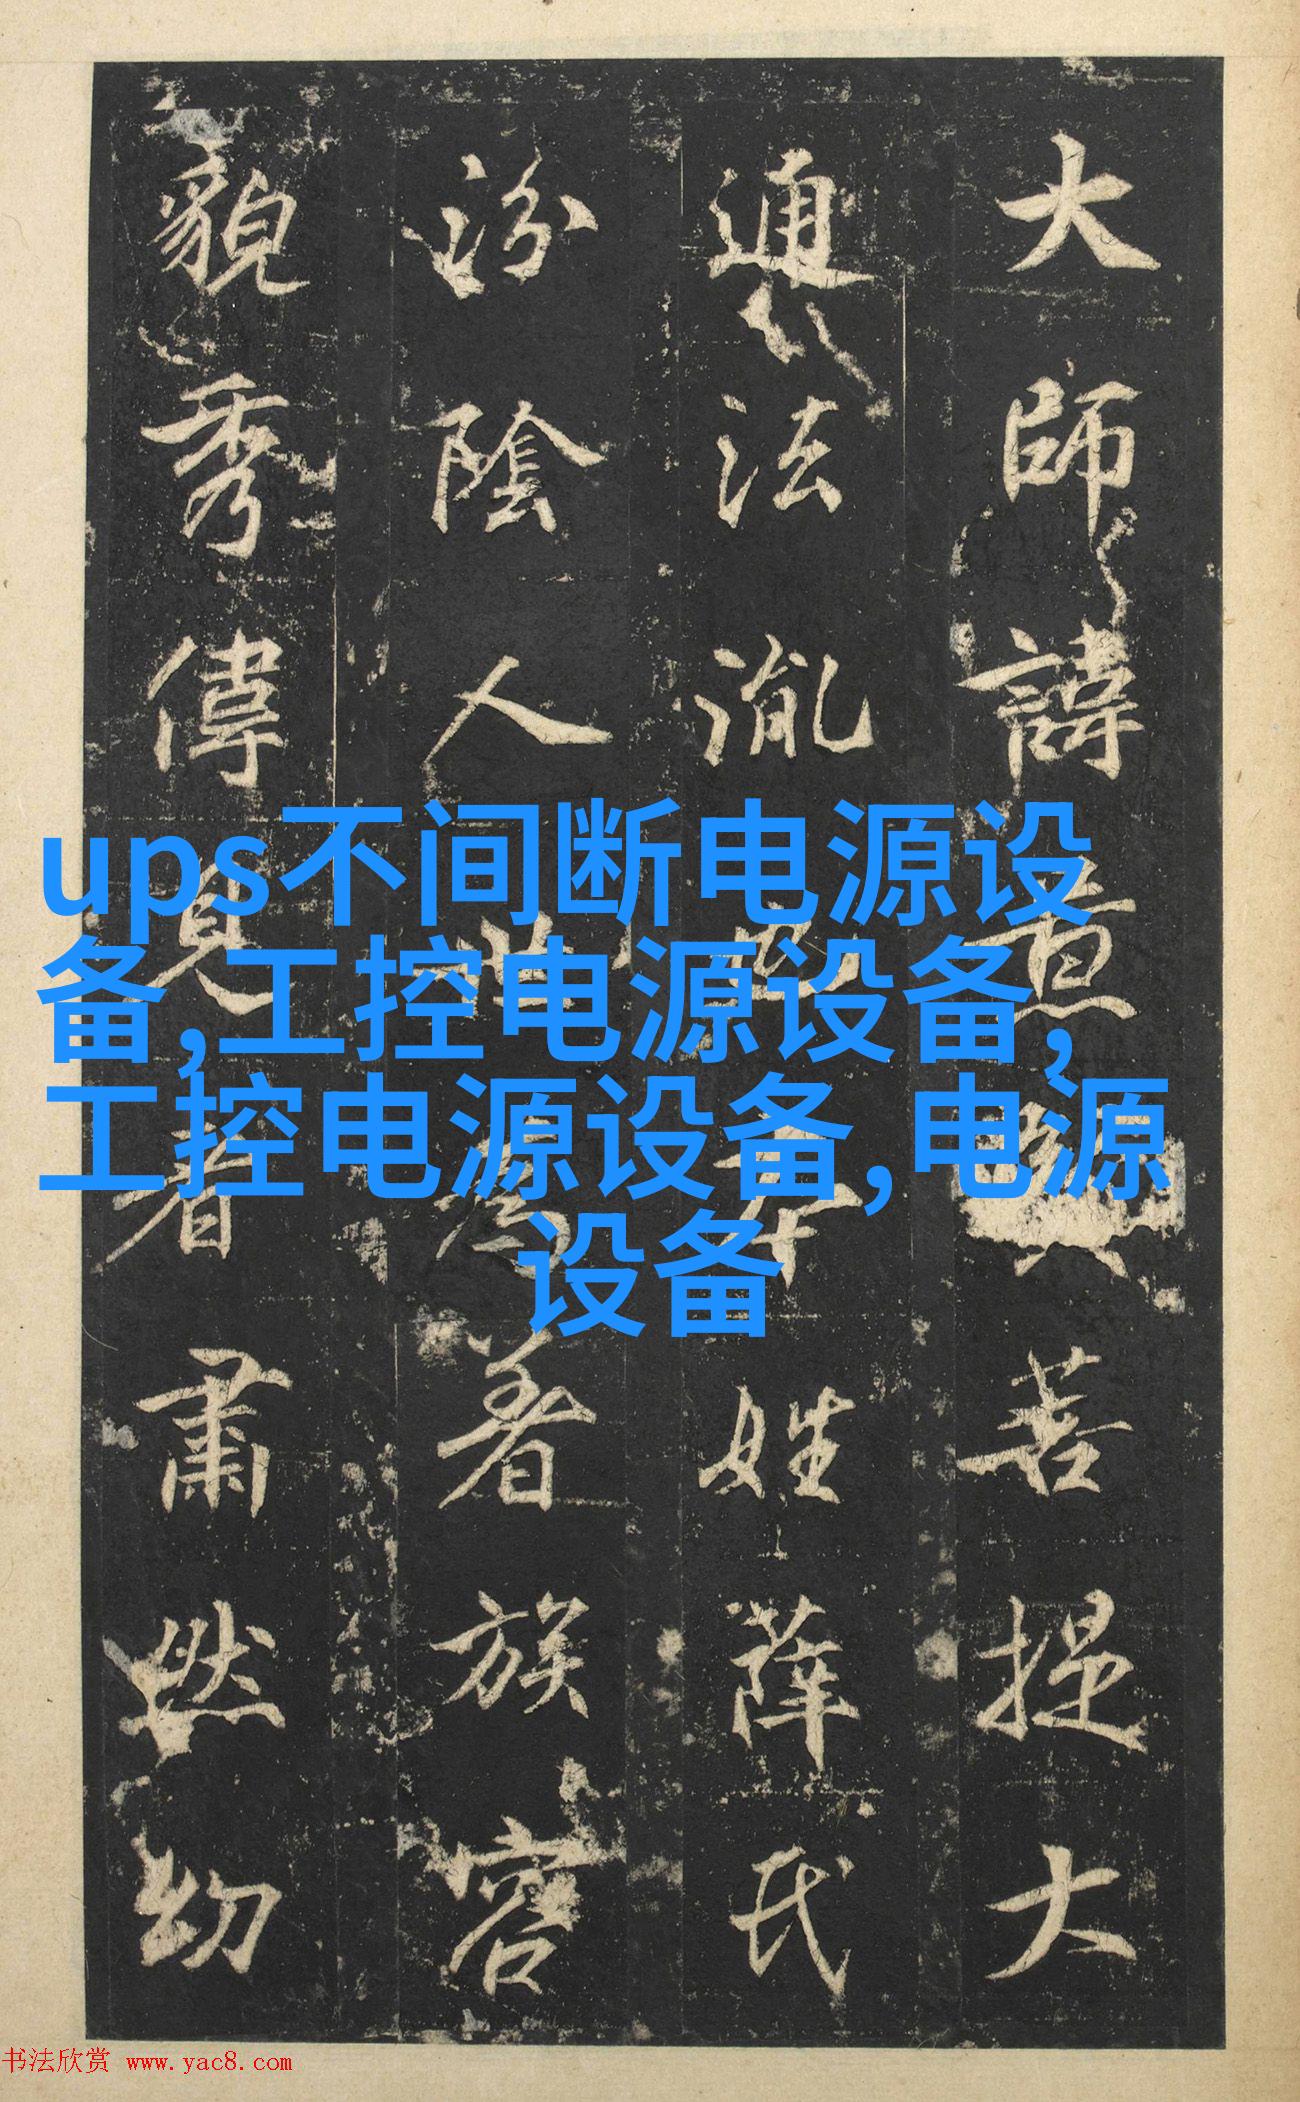 大師諱菩提大
通法胤姓薛氏
汾陰人著族容
貌秀偉見者肅然幼
ups不间断电源设
备,工控电源设备,
工控电源设备,电源
设备
书法欣赏 www.yac8.com